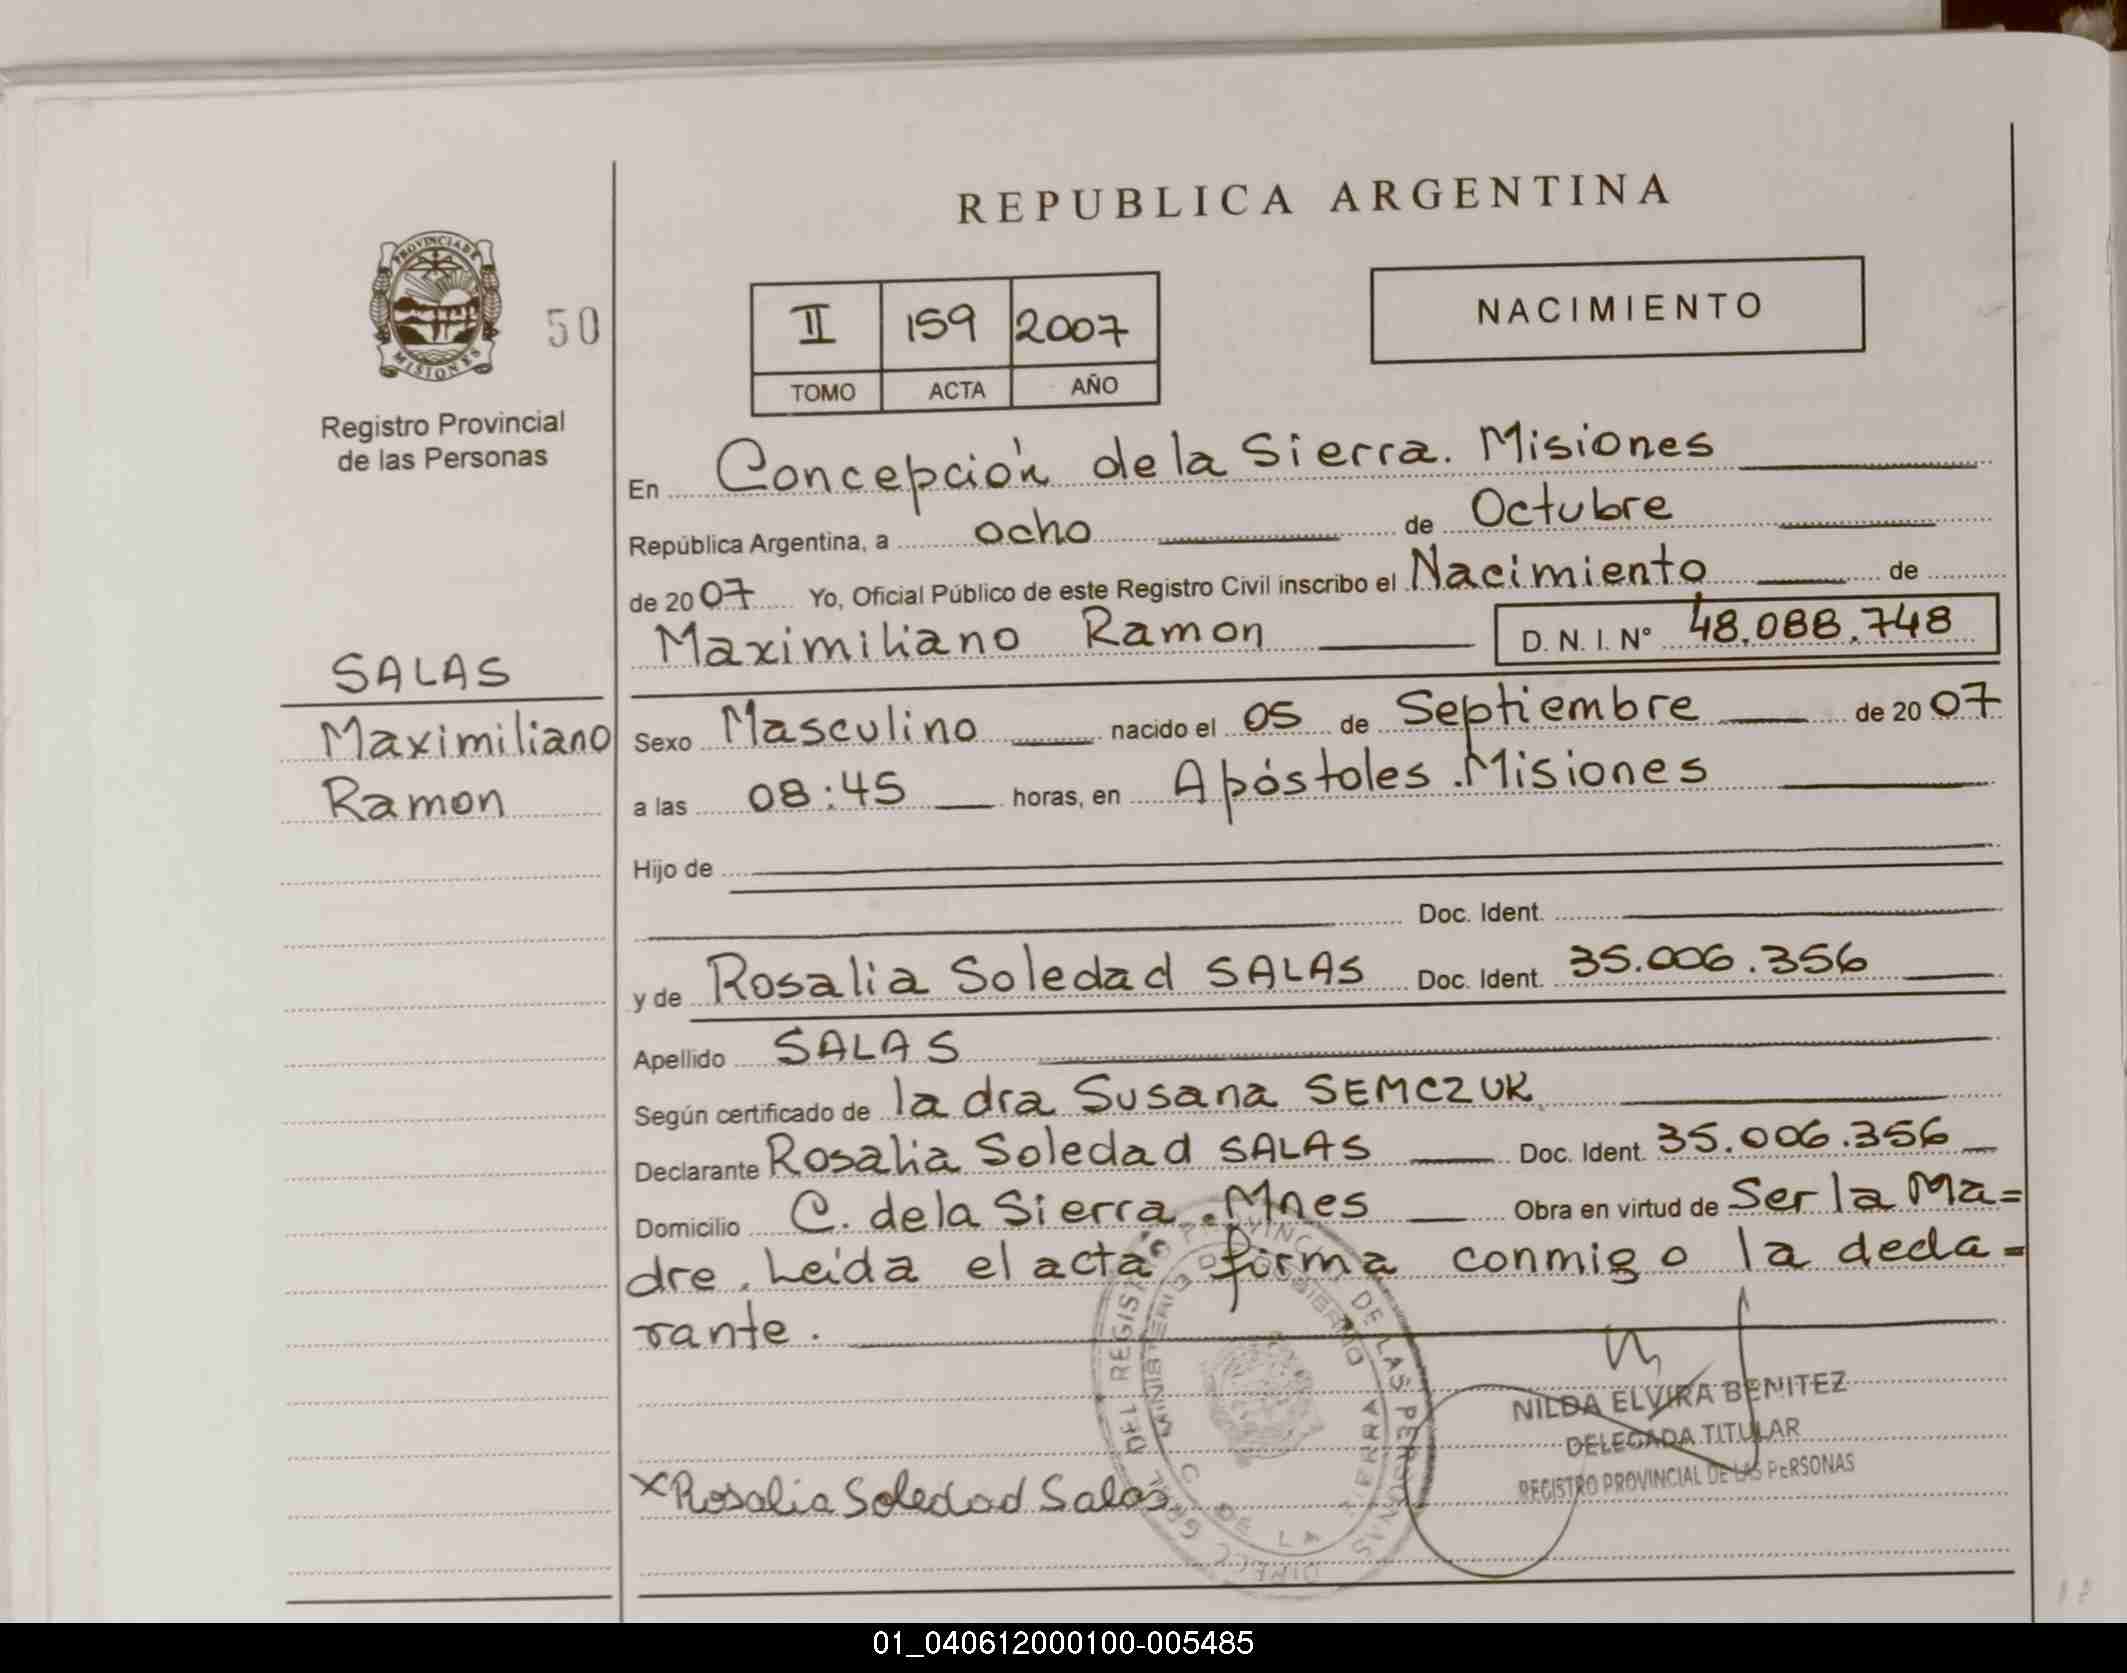 REPUBLICA ARGENTINA
PROVINCIA DE
MISIONES
50
Registro Provincial
de las Personas
II 159 2007
TOMO ACTA AÑO
NACIMIENTO
En Concepción de la Sierra. Misiones
República Argentina, a ocho de Octubre
de 2007 Yo, Oficial Público de este Registro Civil inscribo el Nacimiento de
Maximiliano Ramon D. N. I. N° 48.088.748
SALAS
Maximiliano
Ramon
Sexo Masculino nacido el 05 de Septiembre de 2007
a las 08:45 horas, en Apóstoles. Misiones
Hijo de
Doc. Ident.
y de Rosalia Soledad SALAS Doc. Ident. 35.006.356
Apellido SALAS
Según certificado de la dra Susana SEMCZUK
Declarante Rosalia Soledad SALAS Doc. Ident. 35.006.356
Domicilio C. de la Sierra. Mnes Obra en virtud de Ser la Ma=
dre. Leída el acta firma conmigo la decla=
rante.
NILDA ELVIRA BENITEZ
DELEGADA TITULAR
REGISTRO PROVINCIAL DE LAS PERSONAS
x Rosalia Soledad Salas
01_040612000100-005485